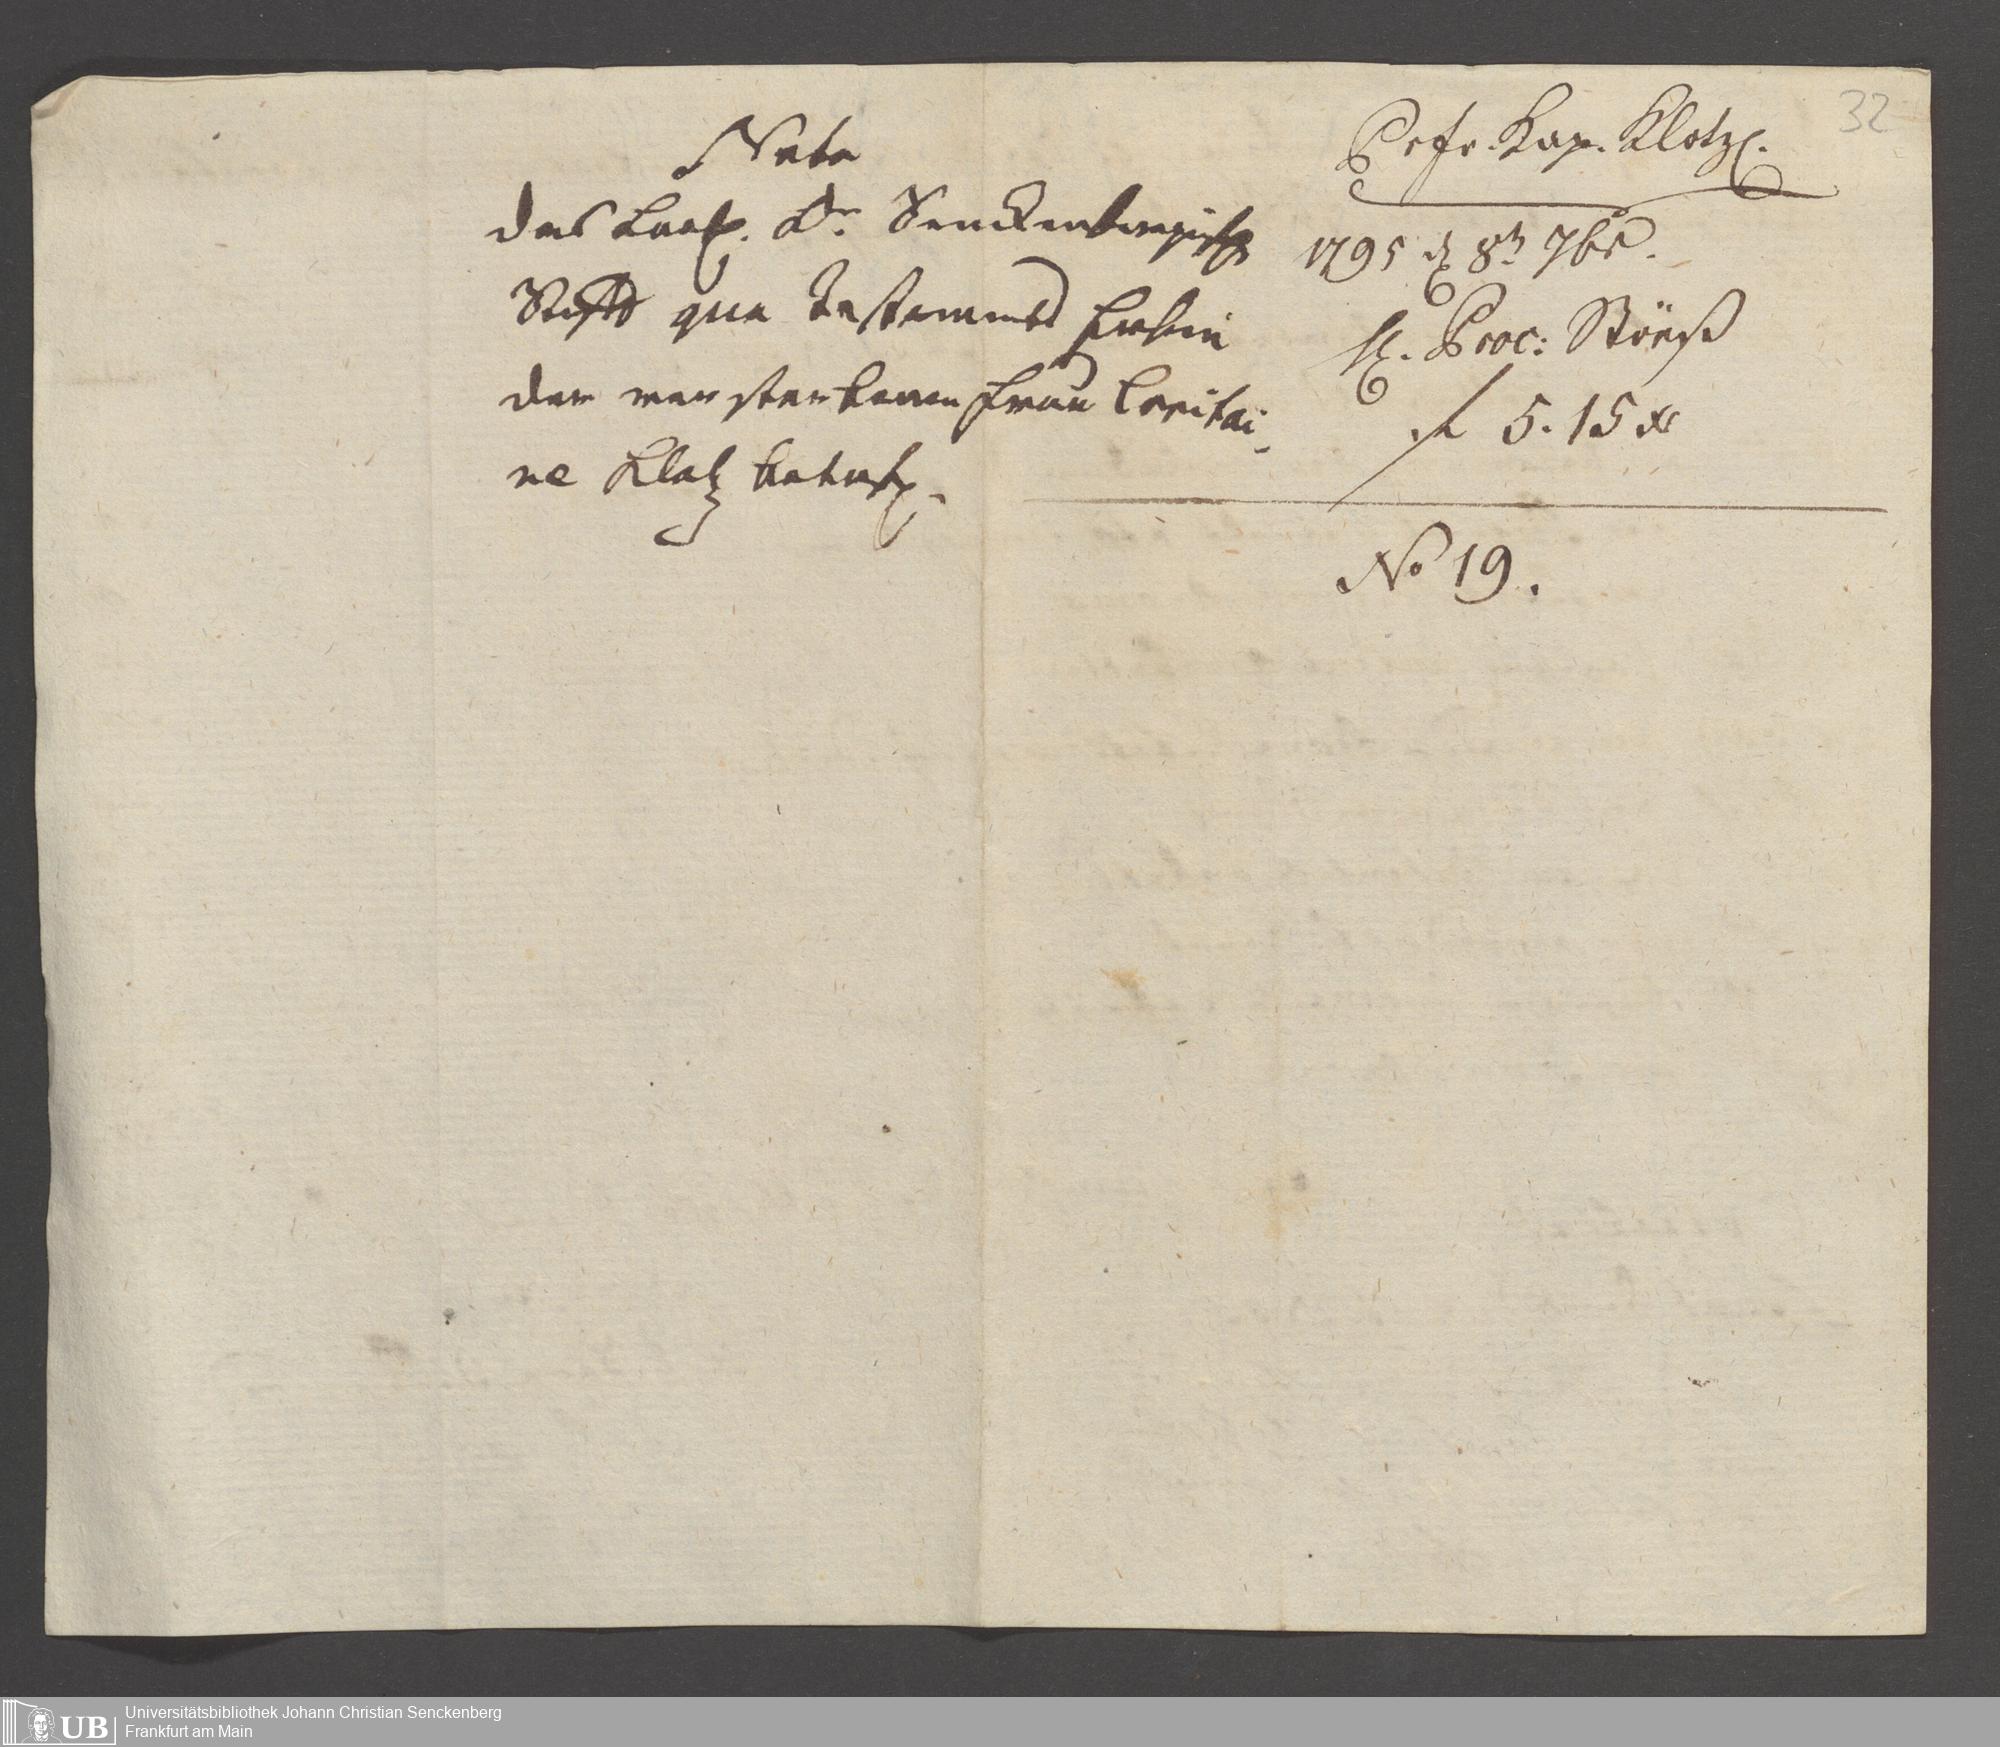 Nota
das Laabl. Dr. Senckenbergische
Stifft qua Testaments Erbin
der verstorbenen Frau Capitai-
ne Klotz betreff.
Kap. Klotz.
1795 d. 8t. 7br.
H. Proc:
f 5. 15 xr
No 19.
32
Universitätsbibliothek Johann Christian Senckenberg
Frankfurt am Main
UB